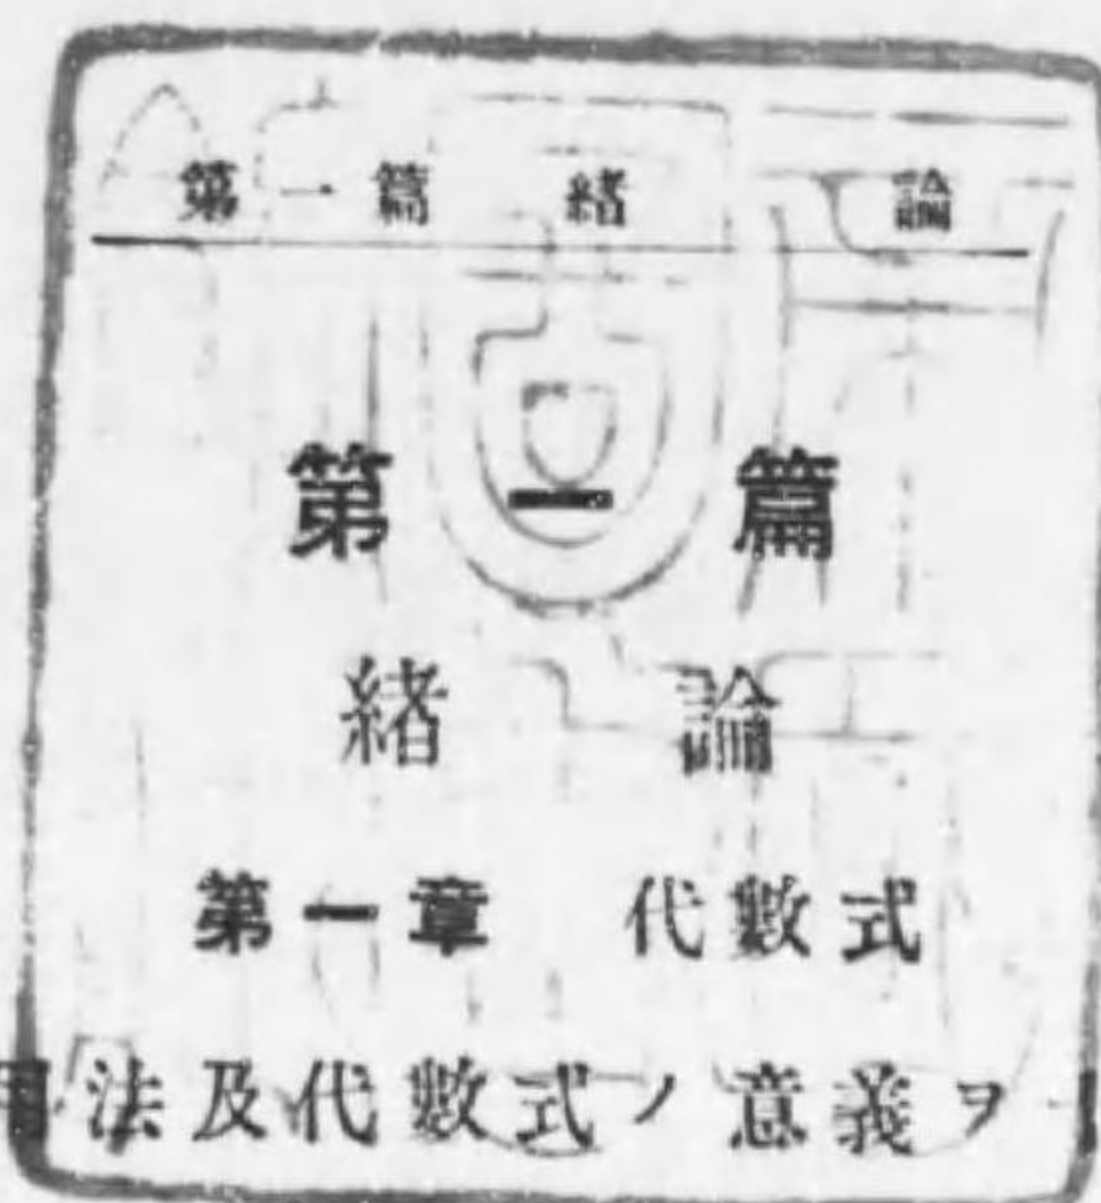 第一篇 緖論
第一篇
緖論
第一章 代數式
法及代數式ノ意義ヲ